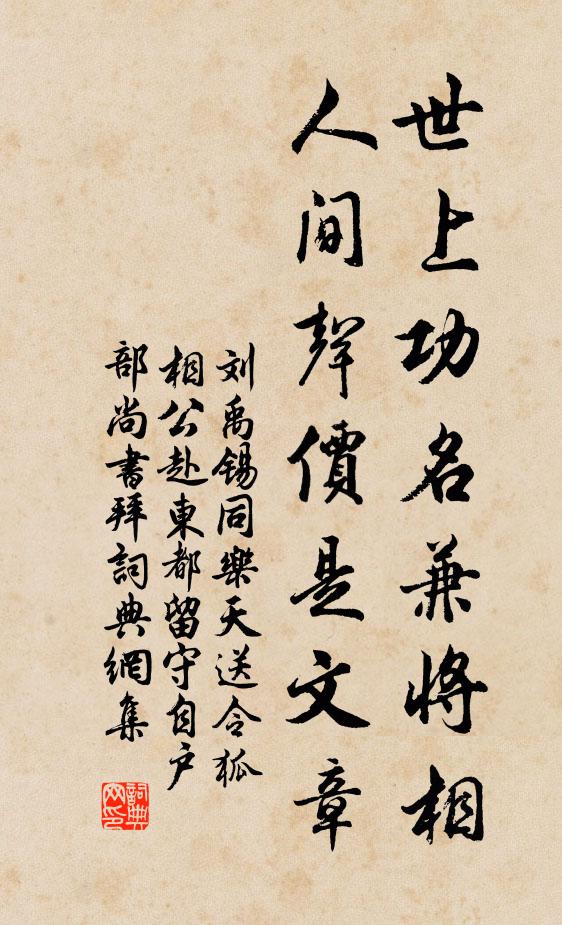 世上功名兼將相
人间聲價是文章
刘禹锡同樂天送令狐
相公赴東都留守自户
部尚書拜詞典網集
詞典
网印